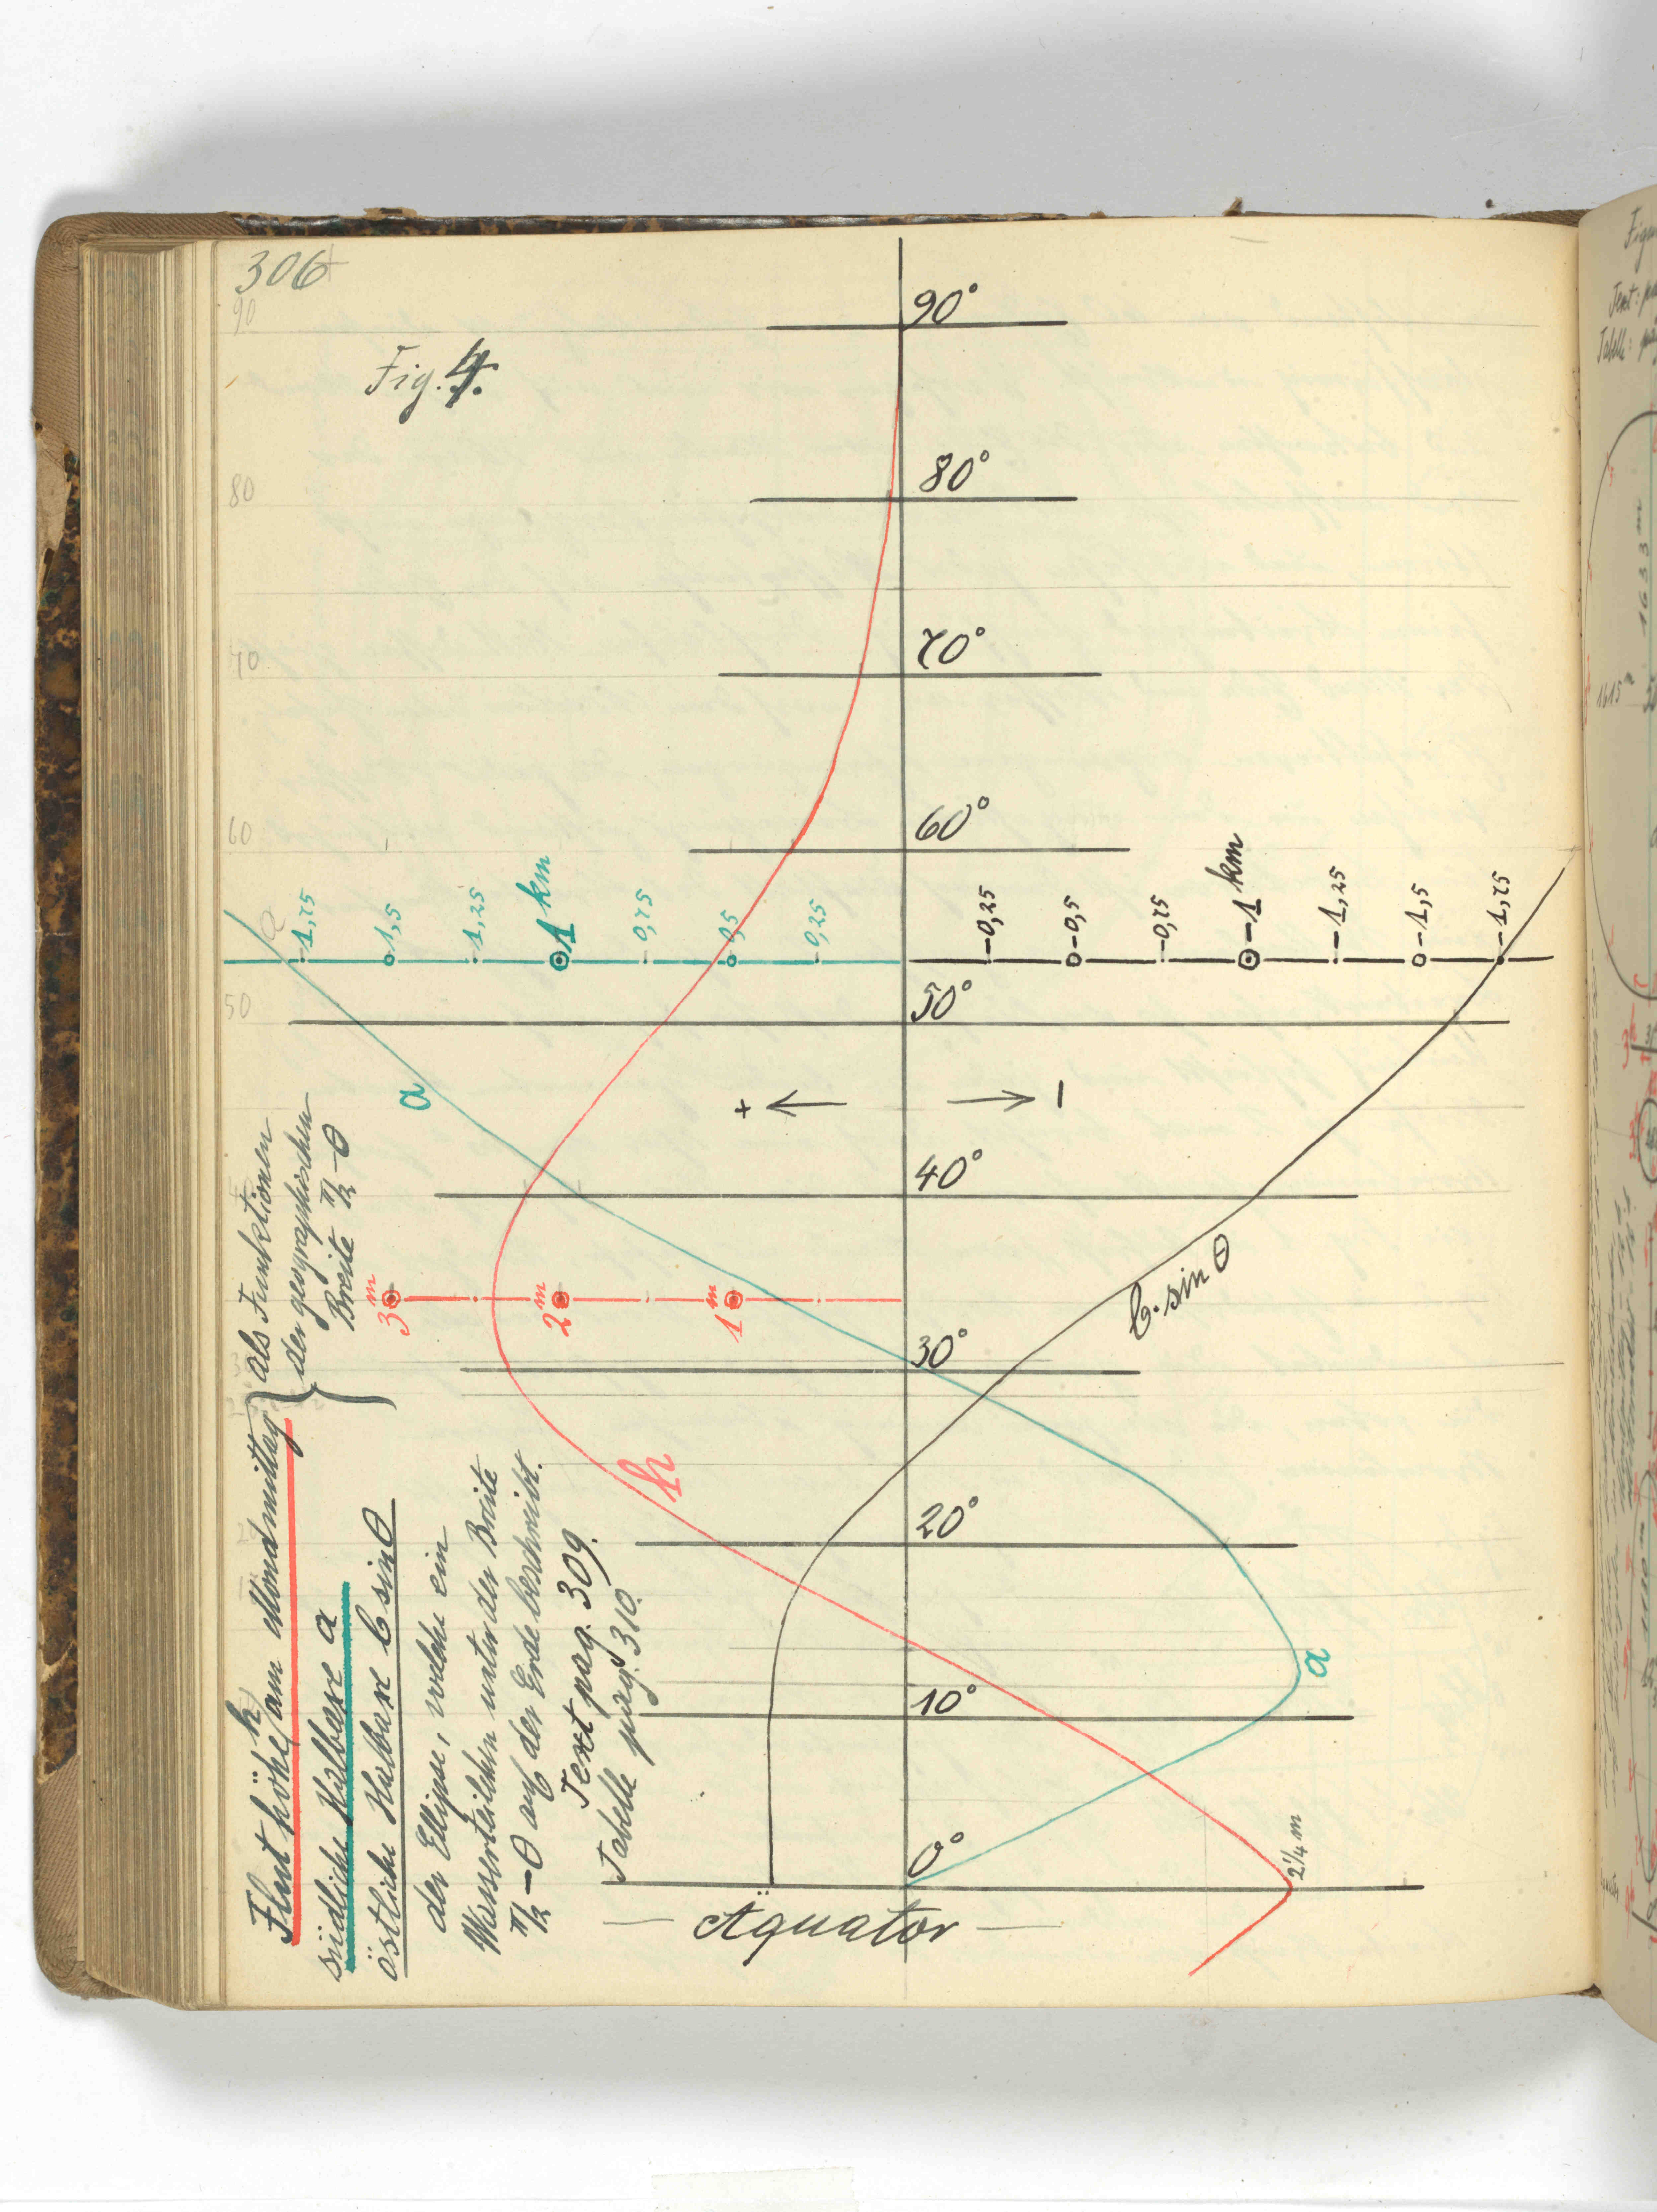 306
90
Fig. 4.
90°
80
80°
70
70°
60
60°
1,75
1,5
1,25
1 km
0,75
0,5
0,25
-0,25
-0,5
-0,75
-1 km
-1,25
-1,5
-1,75
a
50
50°
a
+
−
40°
3 m
2 m
1 m
b·sin θ
30°
Fluthöhe h am Mondmittag
südliche Halbaxe a
östliche Halbaxe b sin θ
als Funktionen
der geographischen
Breite π/2 − θ
der Ellipse, welche ein
Wasserteilchen unter der Breite
π/2 − θ auf der Erde beschreibt.
Text pag. 309.
Tabelle pag. 310.
h
20°
a
10°
0°
2 1/4 m
— Äquator —
Text:
Tabelle:
1633 m
1615